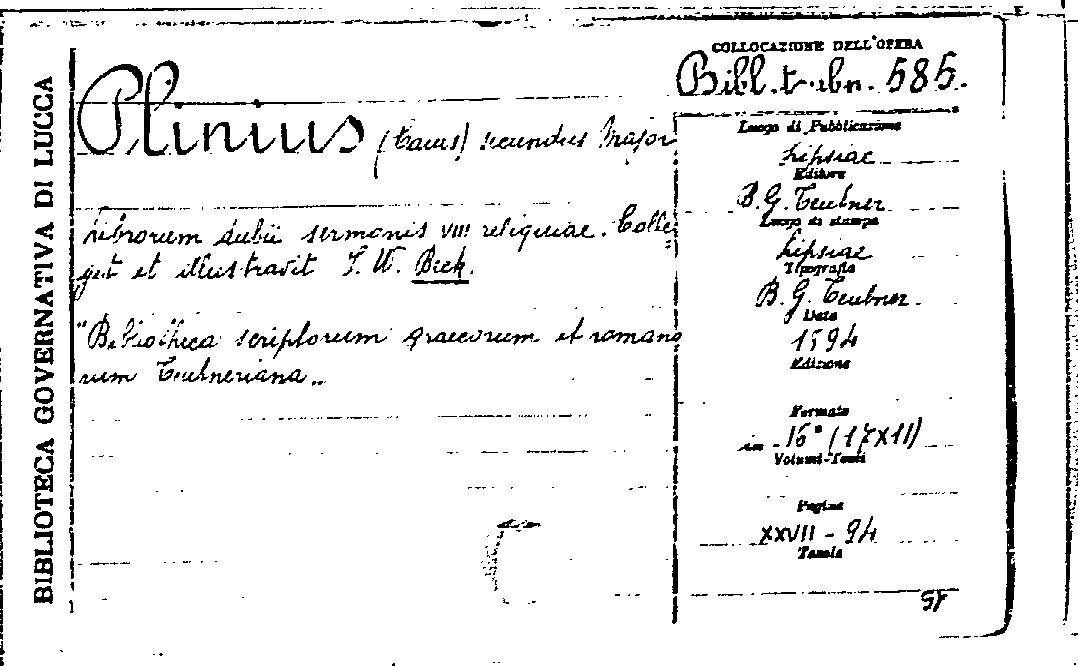 BIBLIOTECA GOVERNATIVA DI LUCCA
Plinius (Caius) secundus Major
Librorum dubii sermonis VIII reliquiae. Colle
git et illustravit J. W. Beck.
"Bibliotheca scriptorum graecorum et romano
rum Teubneriana„
COLLOCAZIONE DELL'OPERA
Bibl. t. ibn. 585.
Luogo di Pubblicazione
Lipsiae
Editore
B. G. Teubner
Luogo di stampa
Lipsiae
Tipografia
B. G. Teubner.
Data
1894
Edizione
Formato
in 16° (17X11)
Volumi-Tomi
Pagine
XXVII - 94
Tavole